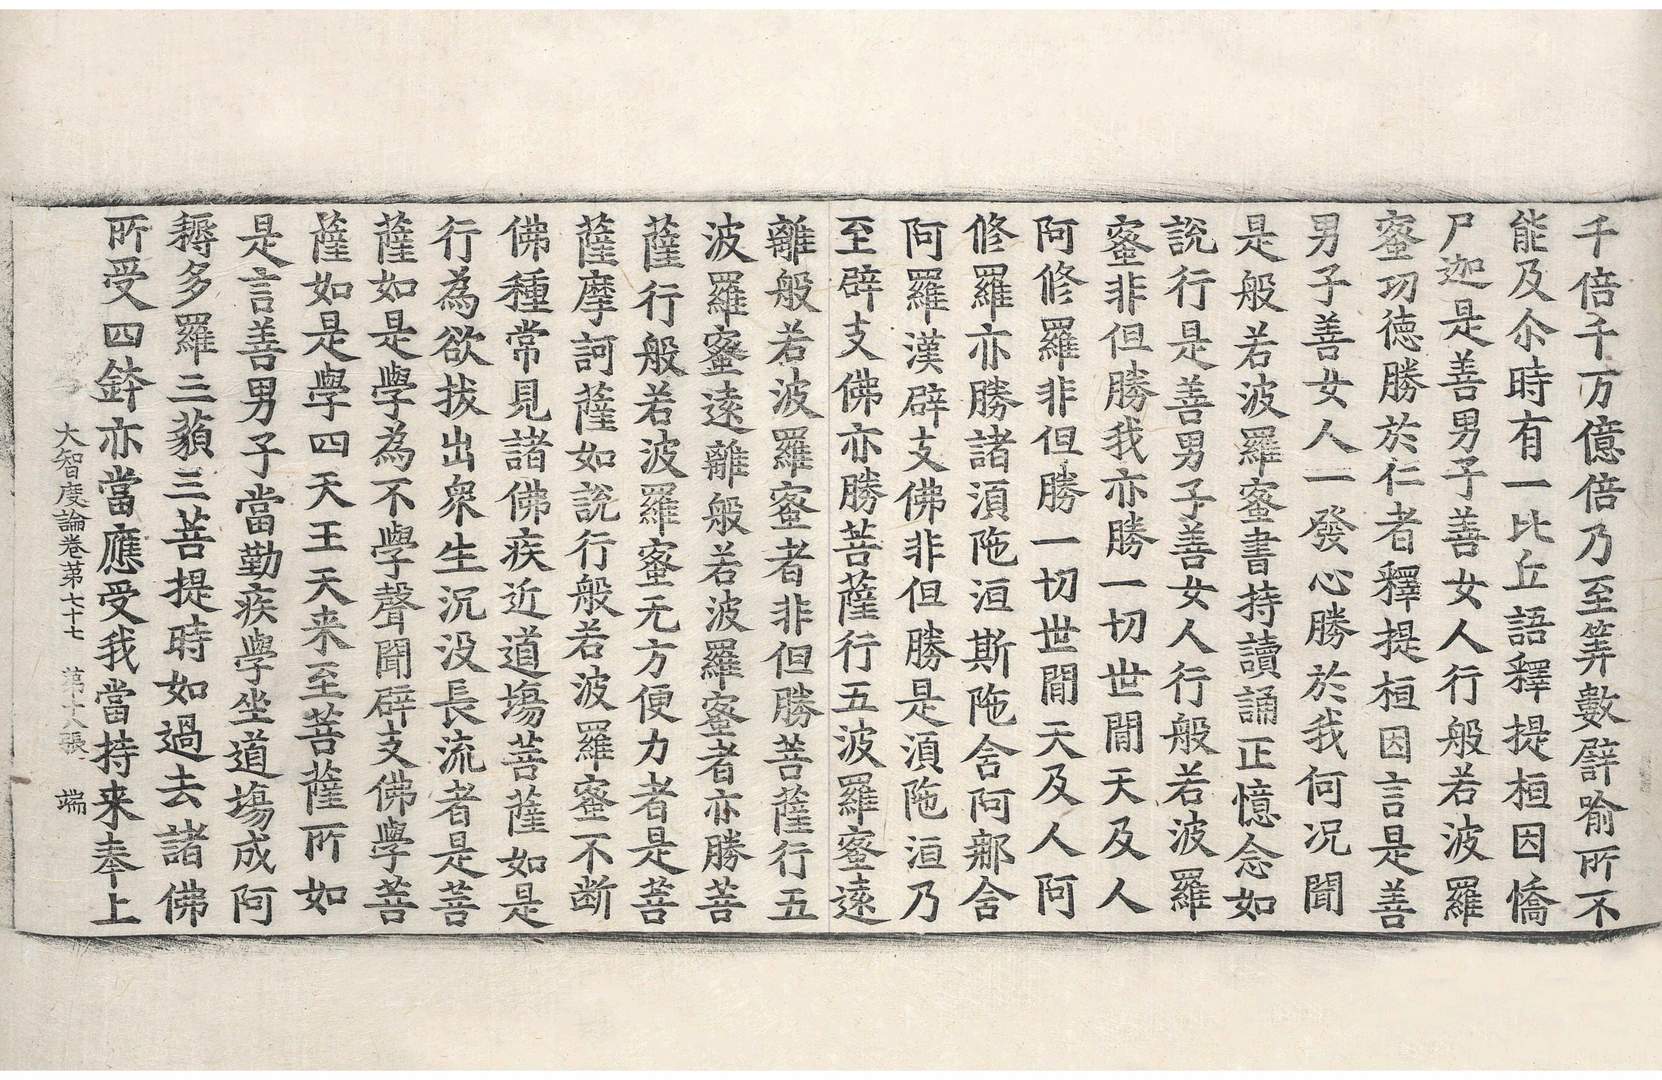 千倍千万億倍乃至筭數辟喻所不
能及尒時有一比丘語釋提桓因憍
尸迦是善男子善女人行般若波羅
蜜功德勝於仁者釋提桓因言是善
男子善女人一發心勝於我何況聞
是般若波羅蜜書持讀誦正憶念如
說行是善男子善女人行般若波羅
蜜非但勝我亦勝一切世閒天及人
阿修羅非但勝一切世閒天及人阿
修羅亦勝諸湏陁洹斯陁舍阿那舍
阿羅漢辟支佛非但勝是湏陁洹乃
至辟支佛亦勝菩薩行五波羅蜜遠
離般若波羅蜜者非但勝菩薩行五
波羅蜜遠離般若波羅蜜者亦勝菩
薩行般若波羅蜜无方便力者是菩
薩摩訶薩如說行般若波羅蜜不断
佛種常見諸佛疾近道場菩薩如是
行為欲拔出衆生沉没長流者是菩
薩如是學為不學聲聞辟支佛學菩
薩如是學四天王天来至菩薩所如
是言善男子當勤疾學坐道場成阿
耨多羅三藐三菩提時如過去諸佛
所受四鉢亦當應受我當持来奉上
大智度論卷第七十七 第十八張 端